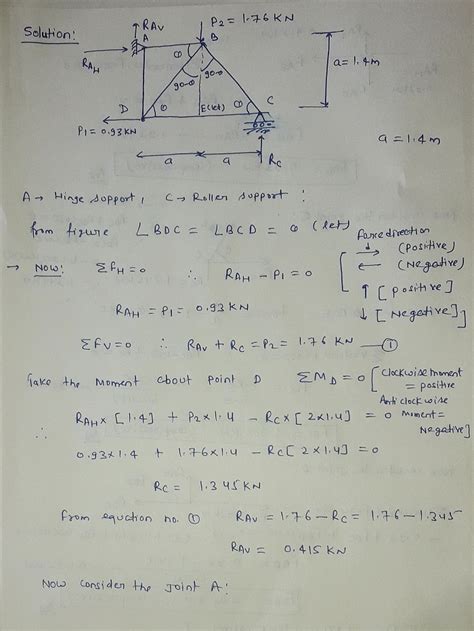 Solution:
RAV
P2 = 1.76 KN
A
B
RAH
θ
90-θ
90-θ
a = 1.4m
D
θ
E(let)
θ
C
P1 = 0.93KN
a
a
RC
a = 1.4m
A → Hinge support, C → Roller support :
from figure ∠BDC = ∠BCD = θ (let)
Force direction
→ (Positive)
← (Negative)
↑ [positive]
↓ [Negative]
→ Now: ΣfH = 0 ∴ RAH - P1 = 0
RAH = P1 = 0.93 KN
ΣfV = 0 ∴ RAV + RC = P2 = 1.76 KN — ①
Take the Moment about point D ΣMD = 0 [Clockwise moment = positive
Anticlockwise moment = Negative]
∴ RAH × [1.4] + P2 × 1.4 - RC × [2×1.4] = 0
0.93×1.4 + 1.76×1.4 - RC[2×1.4] = 0
RC = 1.345 KN
From equation no. ① RAV = 1.76 - RC = 1.76 - 1.345
RAV = 0.415 KN
Now consider the Joint A: